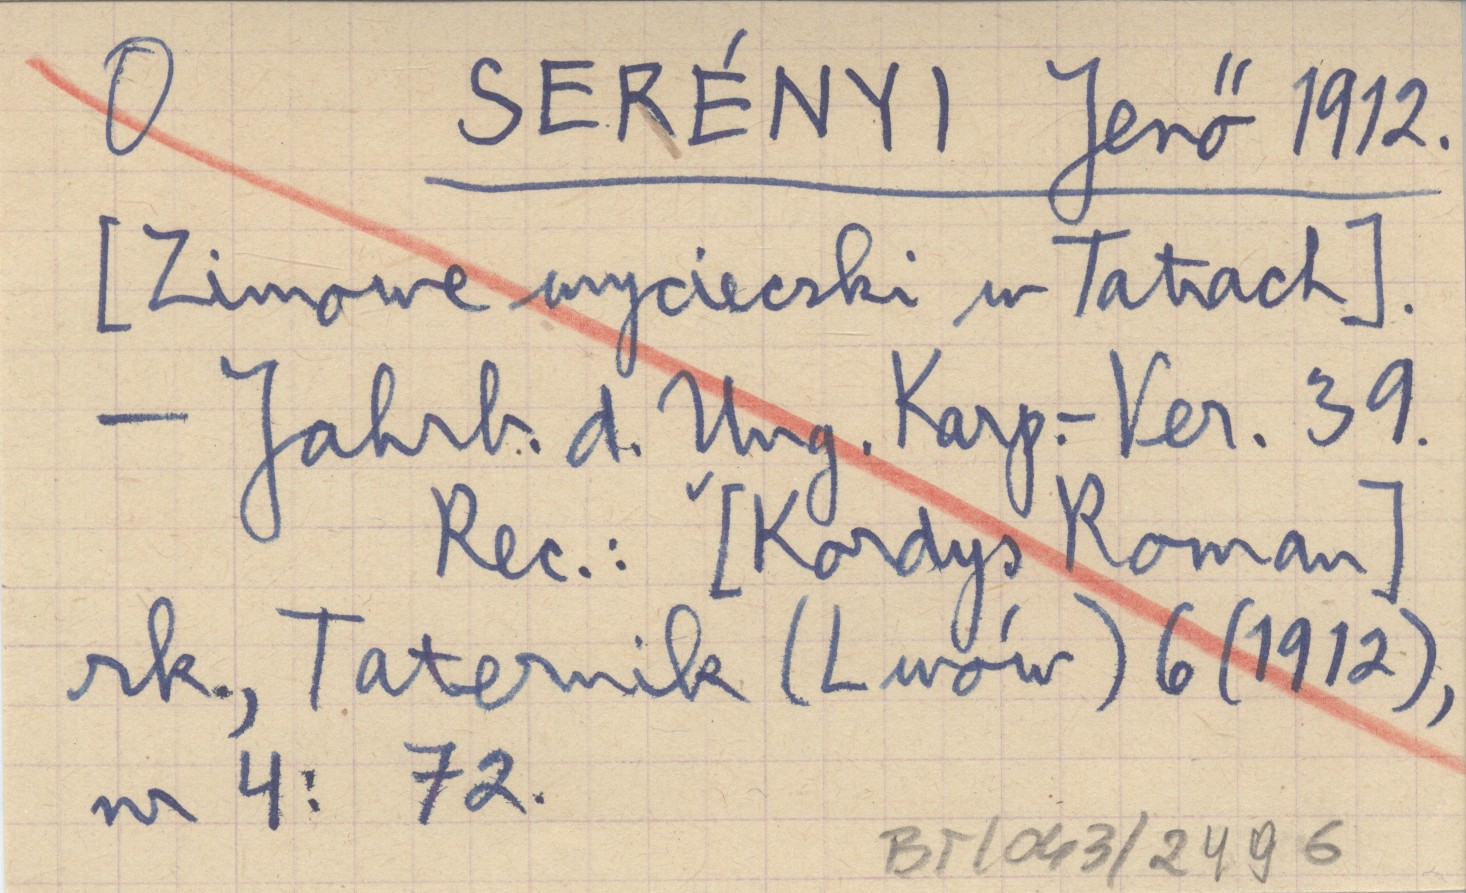 O SERÉNYI Jenő 1912.
[Zimowe wycieczki w Tatrach].
— Jahrb. d. Ung. Karp.-Ver. 39.
Rec.: [Kordys Roman]
rk., Taternik (Lwów) 6 (1912),
nr 4: 72.
BT/043/2496